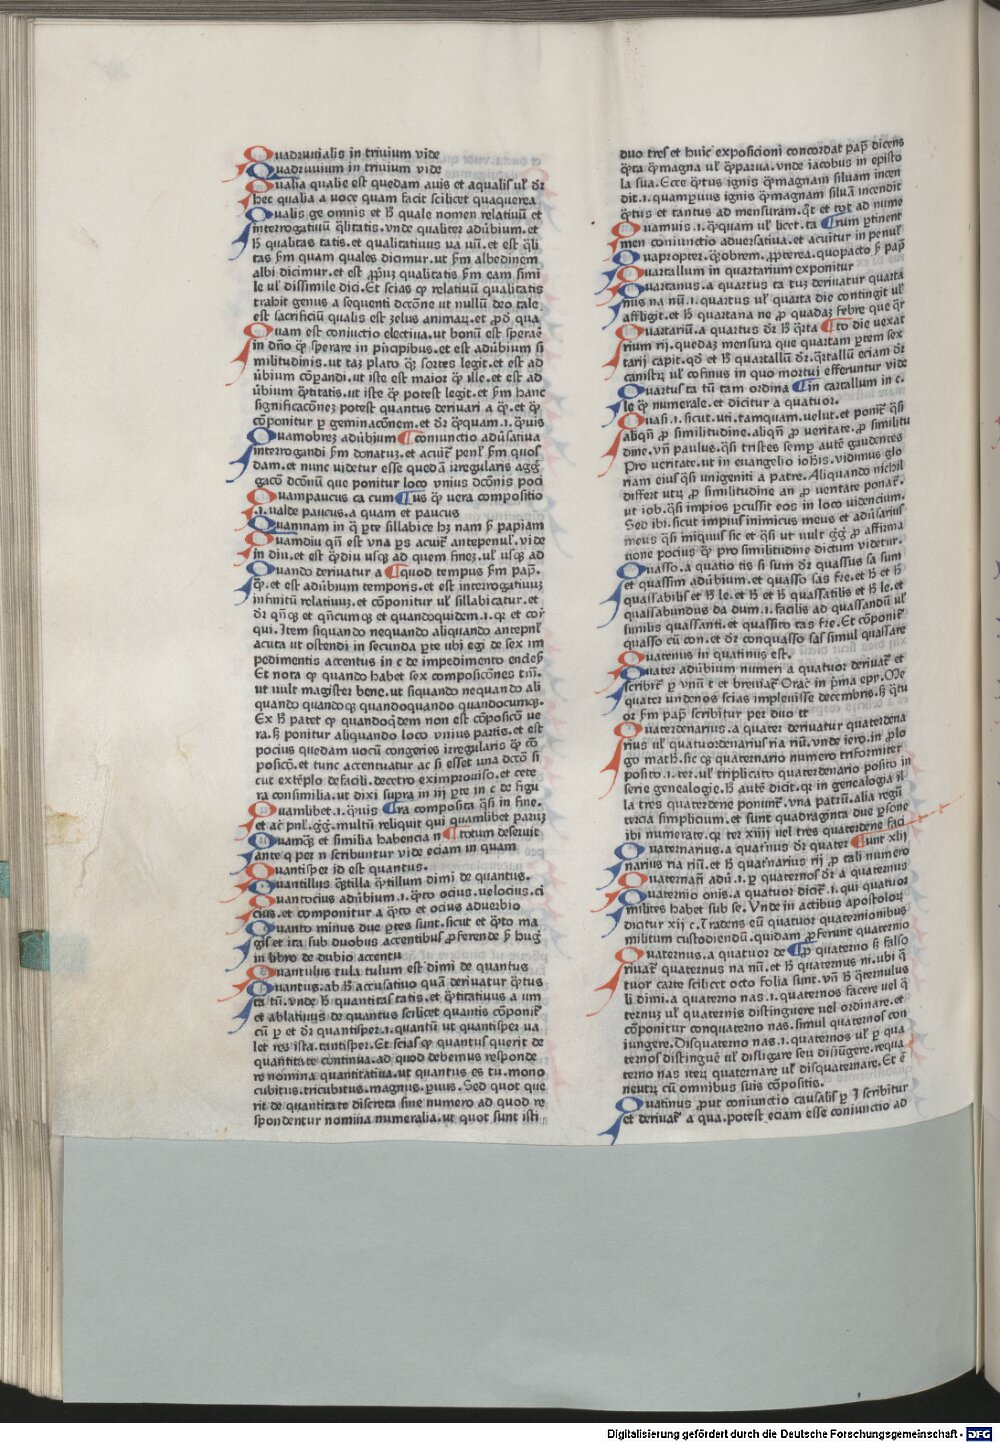 Quadruuialis in triuium vide
Quadruuium in triuium vide
Qualia qualie est quedam auis et aqualis ul' dr
hec qualia a voce quam facit scilicet quaquerea
Qualis ge omnis et h̄ quale nomen relatiuū et
interrogatiuū q̄litatis. vnde qualiter adūbium. et
h̄ qualitas tatis. et qualitatiuus ua uū. et est q̄li
tas s̄m quam quales dicimur. ut s̄m albedinem
albi dicimur. et est p̄p̄iuz qualitatis s̄m eam simi
le ul' dissimile dici. Et scias ꝙ relatiuū qualitatis
trahit genus a sequenti dcc̄one ut nullū deo tale
est sacrificiū qualis est zelus animaꝝ. et ꝓd' qua
Quam est coniuctio electiua. ut bonū est sperare
in dn̄o q̄ꝫ sperare in p̄ncipibus. et est adūbium si
militudinis. ut taꝫ plato q̄ꝫ sortes legit. et est ad
ūbium cōparandi. ut iste est maior q̄ꝫ ille. et est ad
ūbium q̄titatis. ut iste q̄ꝫ potest legit. et s̄m hanc
significacōneꝫ potest quantus deriuari a q̄ꝫ. et q̄ꝫ
cōponitur ꝑ geminacōnem. et dr q̄ꝫquam .i. q̄ꝫuis
Quamobreꝫ adūbium ¶ coniunctio adūsatiua
interrogandi s̄m donatuꝫ. et acuit' penl' s̄m quos
dam. et nunc videtur esse quedā irregularis agḡ
gacō dcc̄onū que ponitur loco vnius dcc̄onis poci
Quampaucus ca cum ¶ us q̄ꝫ vera compositio
.i. ualde paucus. a quam et paucus
Quamnam in q̄ pte sillabice hꝫ nam s̄ papiam
Quamdiu qn̄ est vna ps acuit' antepenul'. vide
in diu. et est q̄ꝫdiu usqꝫ ad quem fineꝫ. ul' usqꝫ ad
Quando deriuatur a ¶ quod tempus s̄m pap̄.
q̄ꝫ. et est adūbium temporis. et est interrogatiuuꝫ
infinitū relatiuuꝫ. et cōponitur ul' sillabicatur. et
dr qn̄qꝫ et qn̄cumqꝫ et quandoquidem .i. qr et cor'
qui. Item siquando nequando aliquando antepnl'
acuta ut ostendi in secunda pte ubi egi de sex im
pedimentis accentus in c de impedimento encles̄
Et nota ꝙ quando habet sex composicōnes tm̄.
ut uult magister bene. ut siquando nequando ali
quando quandoqꝫ quandoquando quandocumqꝫ.
Ex h̄ patet ꝙ quandoq̄dem non est cōposicō ue
ra. s̄ ponitur aliquando loco vnius partis. et est
pocius quedam vocū congeries irregularis q̄ꝫ cō
posicō. et tunc accentuatur ac si esset una dcc̄o si
cut exēplo de facili. decetro eximprouiso. et cete
ra consimilia. ut dixi supra in iij pte in c de figu
Quamlibet .i. q̄ꝫuis ¶ ra composita q̄si in fine.
et ac' pnl'. g̃g̃. multū reliquit qui quamlibet paruꝫ
Quamqꝫ et similia habencia n ¶ totum deseruit
ante q per n scribuntur vide eciam in quam
Quantisper id est quantus.
Quantillus q̄tilla q̄tillum dimi de quantus.
Quantocius adūbium .i. q̄to ocius. uelocius. ci
cius. et componitur a q̄to et ocius aduerbio
Quanto minus due ptes sunt. sicut et q̄to ma
gis et ita sub duobus accentibus ꝓferende s̄ hug̃
in libro de dubio accentu
Quantulus tula tulum est dimi de quantus
Quantus. ab h̄ accusatiuo quā deriuatur q̄tus
ta tū. vnde h̄ quantitas tatis. et q̄titatiuus a um
et ablatiuus de quantus scilicet quantis cōponit'
cū ꝑ et dr quantisper .i. quantū ut quantisper ua
let res ista. tantisper. Et scias ꝙ quantus querit de
quantitate continua. ad quod debemus responde
re nomina quantitatiua. ut quantus es tu. mono
cubitus. tricubitus. magnus. paruus. Sed quot que
rit de quantitate discreta siue numero ad quod re
spondentur nomina numeralia. ut quot sunt isti
duo tres et huic exposicioni concordat pap̄ dicens
q̄ta q̄ꝫ magna ul' q̄ꝫ parua. vnde iacobus in episto
la sua. Ecce q̄tus ignis q̄ꝫ magnam siluam incen
dit .i. quam paruus ignis q̄ꝫ magnam siluā incendit
q̄tus et tantus ad mensuram. q̄t et tot ad nume
Quamuis .i. q̄ꝫquam ul' licet. ta ¶ rum ptinent
men coniunctio aduersatiua. et acuitur in penul'
Quapropter. q̄ꝫobrem. ꝓpterea. quopacto s̄ pap̄
Quartallum in quartarium exponitur
Quartanus. a quartus ta tuꝫ deriuatur quarta
nus na nū .i. quartus ul' quarta die contingit ul'
affligit. et h̄ quartana ne ꝓ quadaꝫ febre que q̄r
Quartariū. a quartus dr h̄ q̄rta ¶ to die uexat
rium rij. quedaꝫ mensura que quartam ptem sex
tarij capit. qd' et h̄ quartallū dr. q̄rtallū eciam dr
canistrꝫ ul' cofinus in quo mortui efferuntur vide
Quartus ta tū tam ordina ¶ in cartallum in c.
le q̄ꝫ numerale. et dicitur a quatuor.
Quasi .i. sicut. uti. tamquam. uelut. et ponit' q̄si
aliqn̄ ꝓ similitudine. aliqn̄ ꝓ ueritate. ꝓ similitu
dine. vn̄ paulus. q̄si tristes semꝑ autē gaudentes
Pro ueritate. ut in euangelio ioh̄is. vidimus glo
riam eius q̄si unigeniti a patre. Aliquando nichil
differt utꝝ ꝓ similitudine an ꝓ ueritate ponat'.
ut iob. q̄si impios percussit eos in loco videncium.
Sed ibi. sicut impius inimicus meus et adūsarius
meus q̄si iniquus sic et q̄si ut uult g̃g̃ ꝓ affirma
tione pocius q̄ꝫ pro similitudine dictum videtur.
Quasso. a quatio tis si sum dr quassus sa sum
et quassim adūbium. et quasso sas s̄re. et h̄ et h̄
quassabilis et h̄ le. et h̄ et h̄ quassatilis et h̄ le. et
quassabundus da dum .i. facilis ad quassandū ul'
similis quassanti. et quassito tas s̄re. Et cōponit'
quasso cū con. et dr conquasso sas simul quassare
Quatenus in quatinus est.
Quater adūbium numeri a quatuor deriuat' et
scribit' ꝑ vnū t et breuiat' Orac' in p̄ma epꝝ. Me
quater undenos scias impleuisse decembris. s̄ q̄tu
or s̄m pap̄ scribitur per duo tt
Quaterdenarius. a quater deriuatur quaterdena
rius ul' quatuordenarius ria riū. vnde iero. in ꝓlo
go math̄. sic qꝫ quaternario numero triformiter
posito .i. ter. ul' triplicato quaterdenario posito in
serie genealogie. h̄ autē dicit. qr in genealogia il
la tres quaterdene ponunt'. vna patrū. alia regū
tercia simplicium. et sunt quadraginta due psone
ibi numerate. qr ter xiiij uel tres quaterdene faci
Quaternarius. a quat'nus dr quater ¶ unt xlij
narius ria riū. et h̄ quat'narius rij ꝓ tali numero
Quaternati adū .i. ꝑ quaternos dr a quaternus
Quaternio onis. a quatuor dicit' .i. qui quatuor
milites habet sub se. Vnde in actibus apostoloꝝ
dicitur xij c. Tradens eū quatuor quaternionibus
militum custodiendū. quidam ꝓferunt quaternio
Quaternus. a quatuor de ¶ ꝓ quaterno s̄ falso
riuat' quaternus na nū. et h̄ quaternus ni. ubi q̄
tuor carte scilicet octo folia sunt. vn̄ h̄ q̄ternulus
li dimi. a quaterno nas .i. quaternos facere uel q̄
ternuꝫ ul' quaternis distinguere uel ordinare. et
cōponitur conquaterno nas. simul quaternos con
iungere. Disquaterno nas .i. quaternos ul' ꝑ qua
ternos distinguē ul' disligare seu disiūgere. requa
terno nas iterꝫ quaternare ul' disquaternare. Et ē
neutꝝ cū omnibus suis cōpositis.
Quatinus ꝓut coniunctio causalis ꝑ I scribitur
et deriuat' a qua. potest eciam esse coniunctio ad
Digitalisierung gefördert durch die Deutsche Forschungsgemeinschaft - DFG